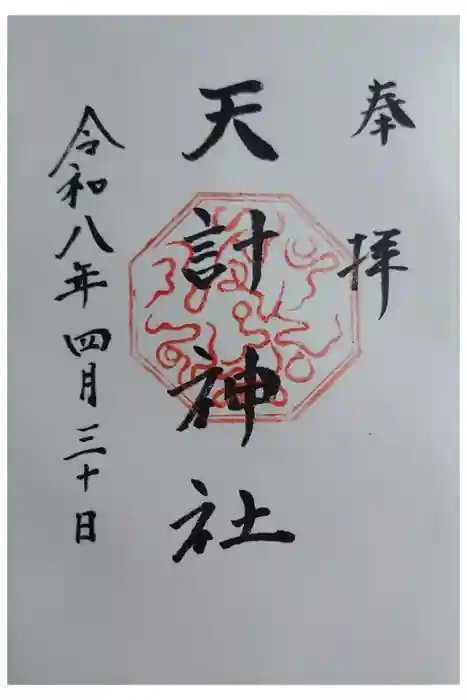 奉拝
天計神社
令和八年四月三十日